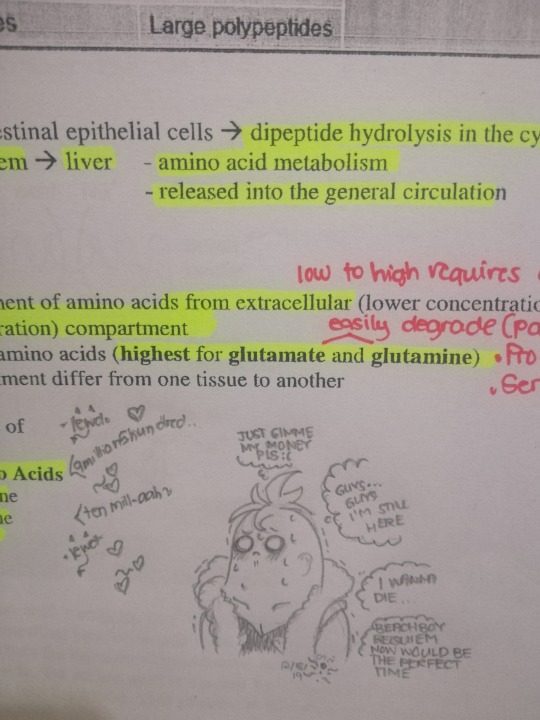 es Large polypeptides
estinal epithelial cells → dipeptide hydrolysis in the cy
em → liver - amino acid metabolism
- released into the general circulation
low to high requires
ment of amino acids from extracellular (lower concentratio
ration) compartment
easily degrade (pa
amino acids (highest for glutamate and glutamine) • Pro
ment differ from one tissue to another
• Ser
of
o Acids
ne
ne
-lewd.
<ten mill-aah>
JUST GIMME
MY MONEY
PLS :(
GUYS...
GUYS
I'M STILL
HERE
I WANNA
DIE...
BEACHBOY
REQUIEM
NOW WOULD BE
THE PERFECT
TIME